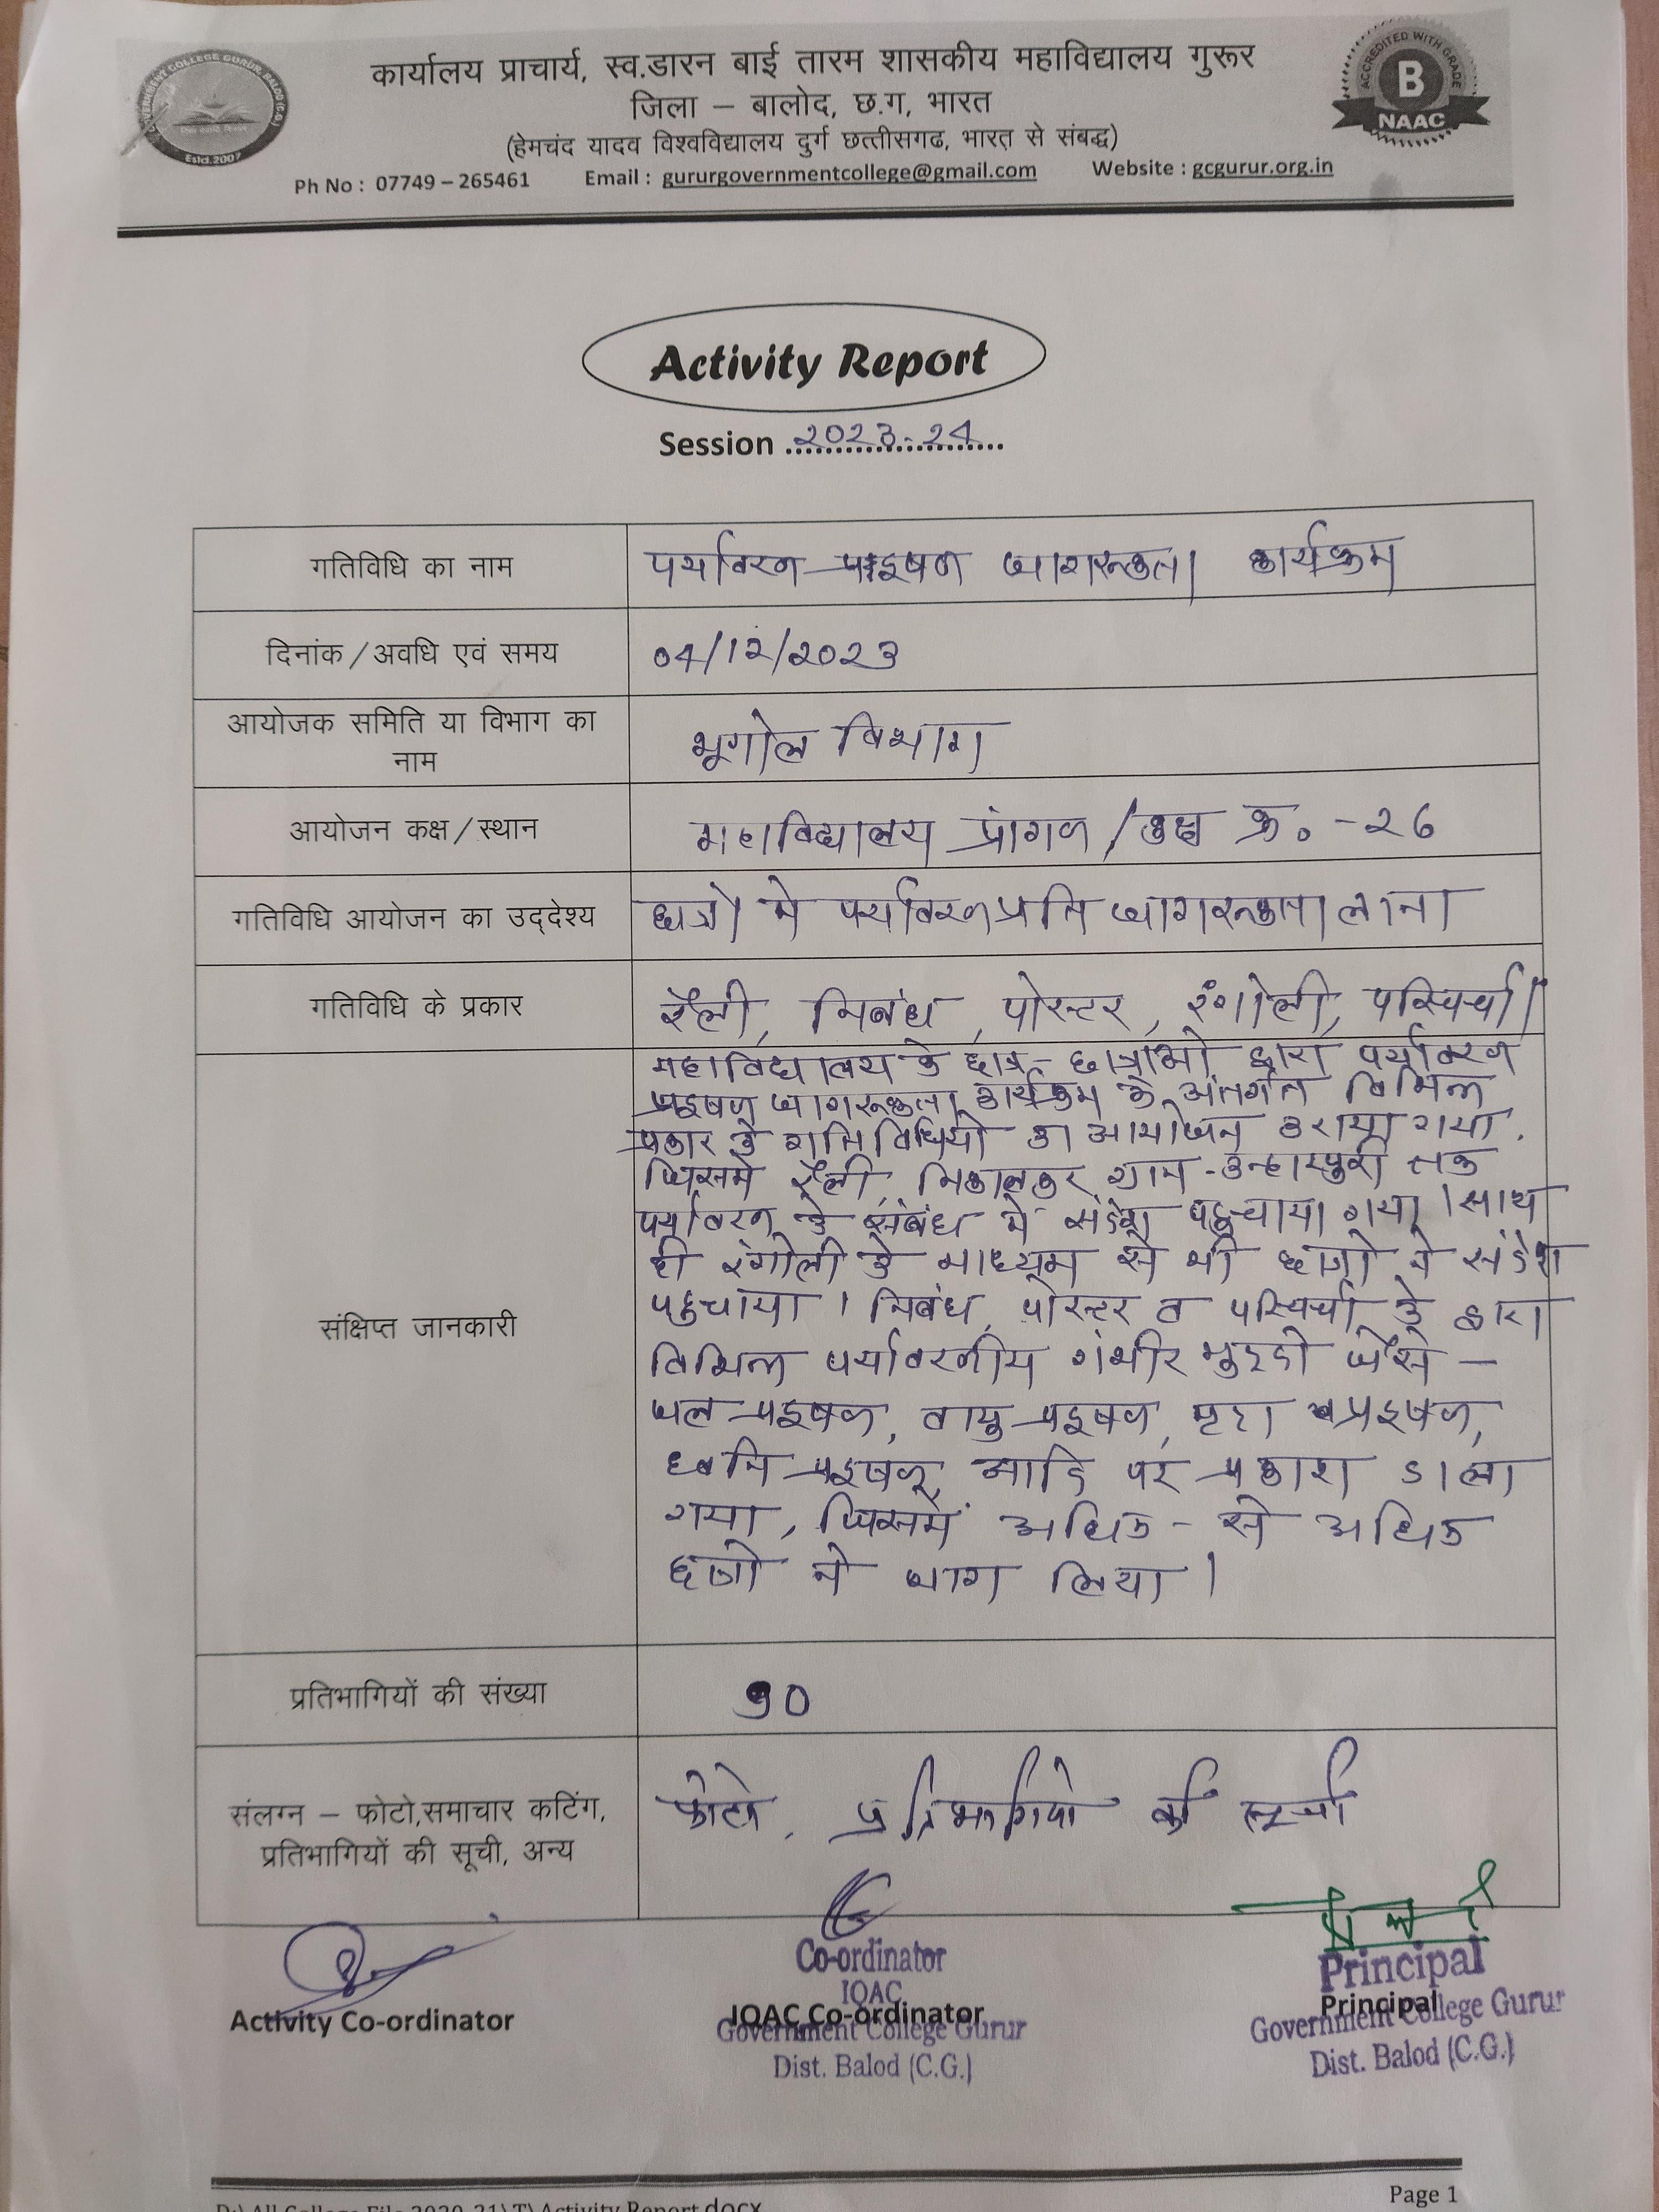 GOVERNMENT COLLEGE GURUR, BALOD (C.G.)
Estd.2007
कार्यालय प्राचार्य, स्व.डारन बाई तारम शासकीय महाविद्यालय गुरूर
जिला – बालोद, छ.ग, भारत
(हेमचंद यादव विश्वविद्यालय दुर्ग छत्तीसगढ, भारत से संबद्ध)
Ph No : 07749 – 265461 Email : gururgovernmentcollege@gmail.com Website : gcgurur.org.in
ACCREDITED WITH GRADE
B
NAAC
Activity Report
Session 2023-24
गतिविधि का नाम
पर्यावरण प्रदूषण जागरूकता कार्यक्रम
दिनांक/अवधि एवं समय
04/12/2023
आयोजक समिति या विभाग का
नाम
भूगोल विभाग
आयोजन कक्ष/स्थान
महाविद्यालय प्रांगण / कक्ष क्र. -26
गतिविधि आयोजन का उद्देश्य
छात्रो मे पर्यावरण प्रति जागरूकता लाना
गतिविधि के प्रकार
रैली, निबंध, पोस्टर, रंगोली, परिचर्चा।
संक्षिप्त जानकारी
महाविद्यालय के छात्र-छात्राओ द्वारा पर्यावरण
प्रदूषण जागरूकता कार्यक्रम के अंतर्गत विभिन्न
प्रकार के गतिविधियो का आयोजन कराया गया.
जिसमे रैली, निकालकर ग्राम - तक
पर्यावरण के संबंध मे संदेश पहुचाया गया। साथ
ही रंगोली के माध्यम से भी छात्रो ने संदेश
पहुचाया। निबंध, पोस्टर व परिचर्चा के द्वारा
विभिन्न पर्यावरणीय गंभीर मुद्दो जैसे -
जल प्रदूषण, वायु प्रदूषण, मृदा प्रदूषण,
ध्वनि प्रदूषण आदि पर प्रकाश डाला
गया, जिसमें अधिक - से अधिक
छात्रो ने भाग लिया।
प्रतिभागियों की संख्या
90
संलग्न – फोटो,समाचार कटिंग,
प्रतिभागियों की सूची, अन्य
फोटो, प्रतिभागियो की सूची
Activity Co-ordinator
Co-ordinator
IQAC
IQAC Co-ordinator
Government College Gurur
Dist. Balod (C.G.)
Principal
Principal
Government College Gurur
Dist. Balod (C.G.)
D:\ All College File 2020-21\ T\ Activity Report.docx
Page 1